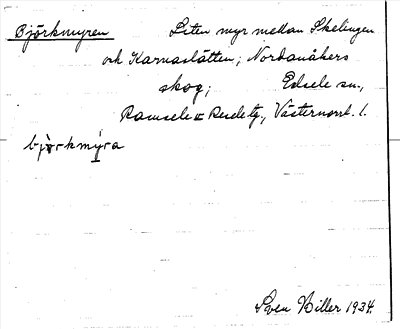 Björkmyren Liten myr mellan Skelingen
och Karnaslätten; Nordanåkers
skog; Edsele sn.,
Ramsele o Resele tg., Västernorrl. l.
björkmýra
Sven Biller 1934.